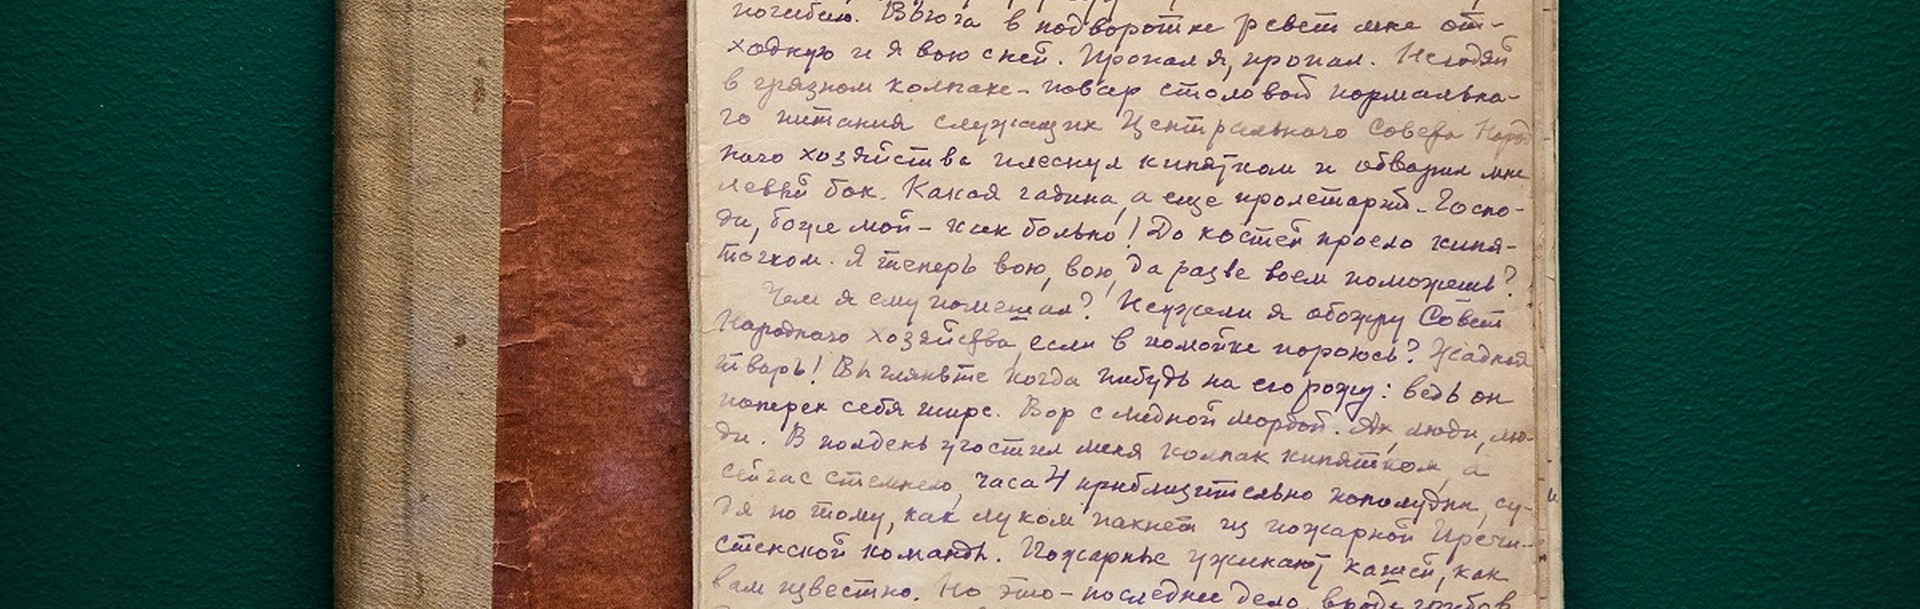 погибаю. Вьюга в подворотне ревет мне от-
ходную и я вою с ней. Пропал я, пропал. Негодяй
в грязном колпаке - повар столовой нормально-
го питания служащих Центрального Совета Народ
ного хозяйства плеснул кипятком и обварил мне
левый бок. Какая гадина, а еще пролетарий. Госпо-
ди, боже мой - как больно! До костей проело кипя-
точком. Я теперь вою, вою, да разве воем поможешь?
Чем я ему помешал? Неужели я обожру Совет
Народного хозяйства, если в помойке пороюсь? Жадная
тварь! Вы гляньте когда нибудь на его рожу: ведь он
поперек себя шире. Вор с медной мордой. Ах, люди, лю-
ди. В полдень угостил меня колпак кипятком, а
сейчас стемнело, часа 4 приблизительно пополудни, су-
дя по тому, как луком пахнет из пожарной Пречи-
стенской команды. Пожарные ужинают кашей, как
вам известно. Но это - последнее дело, вроде грибов